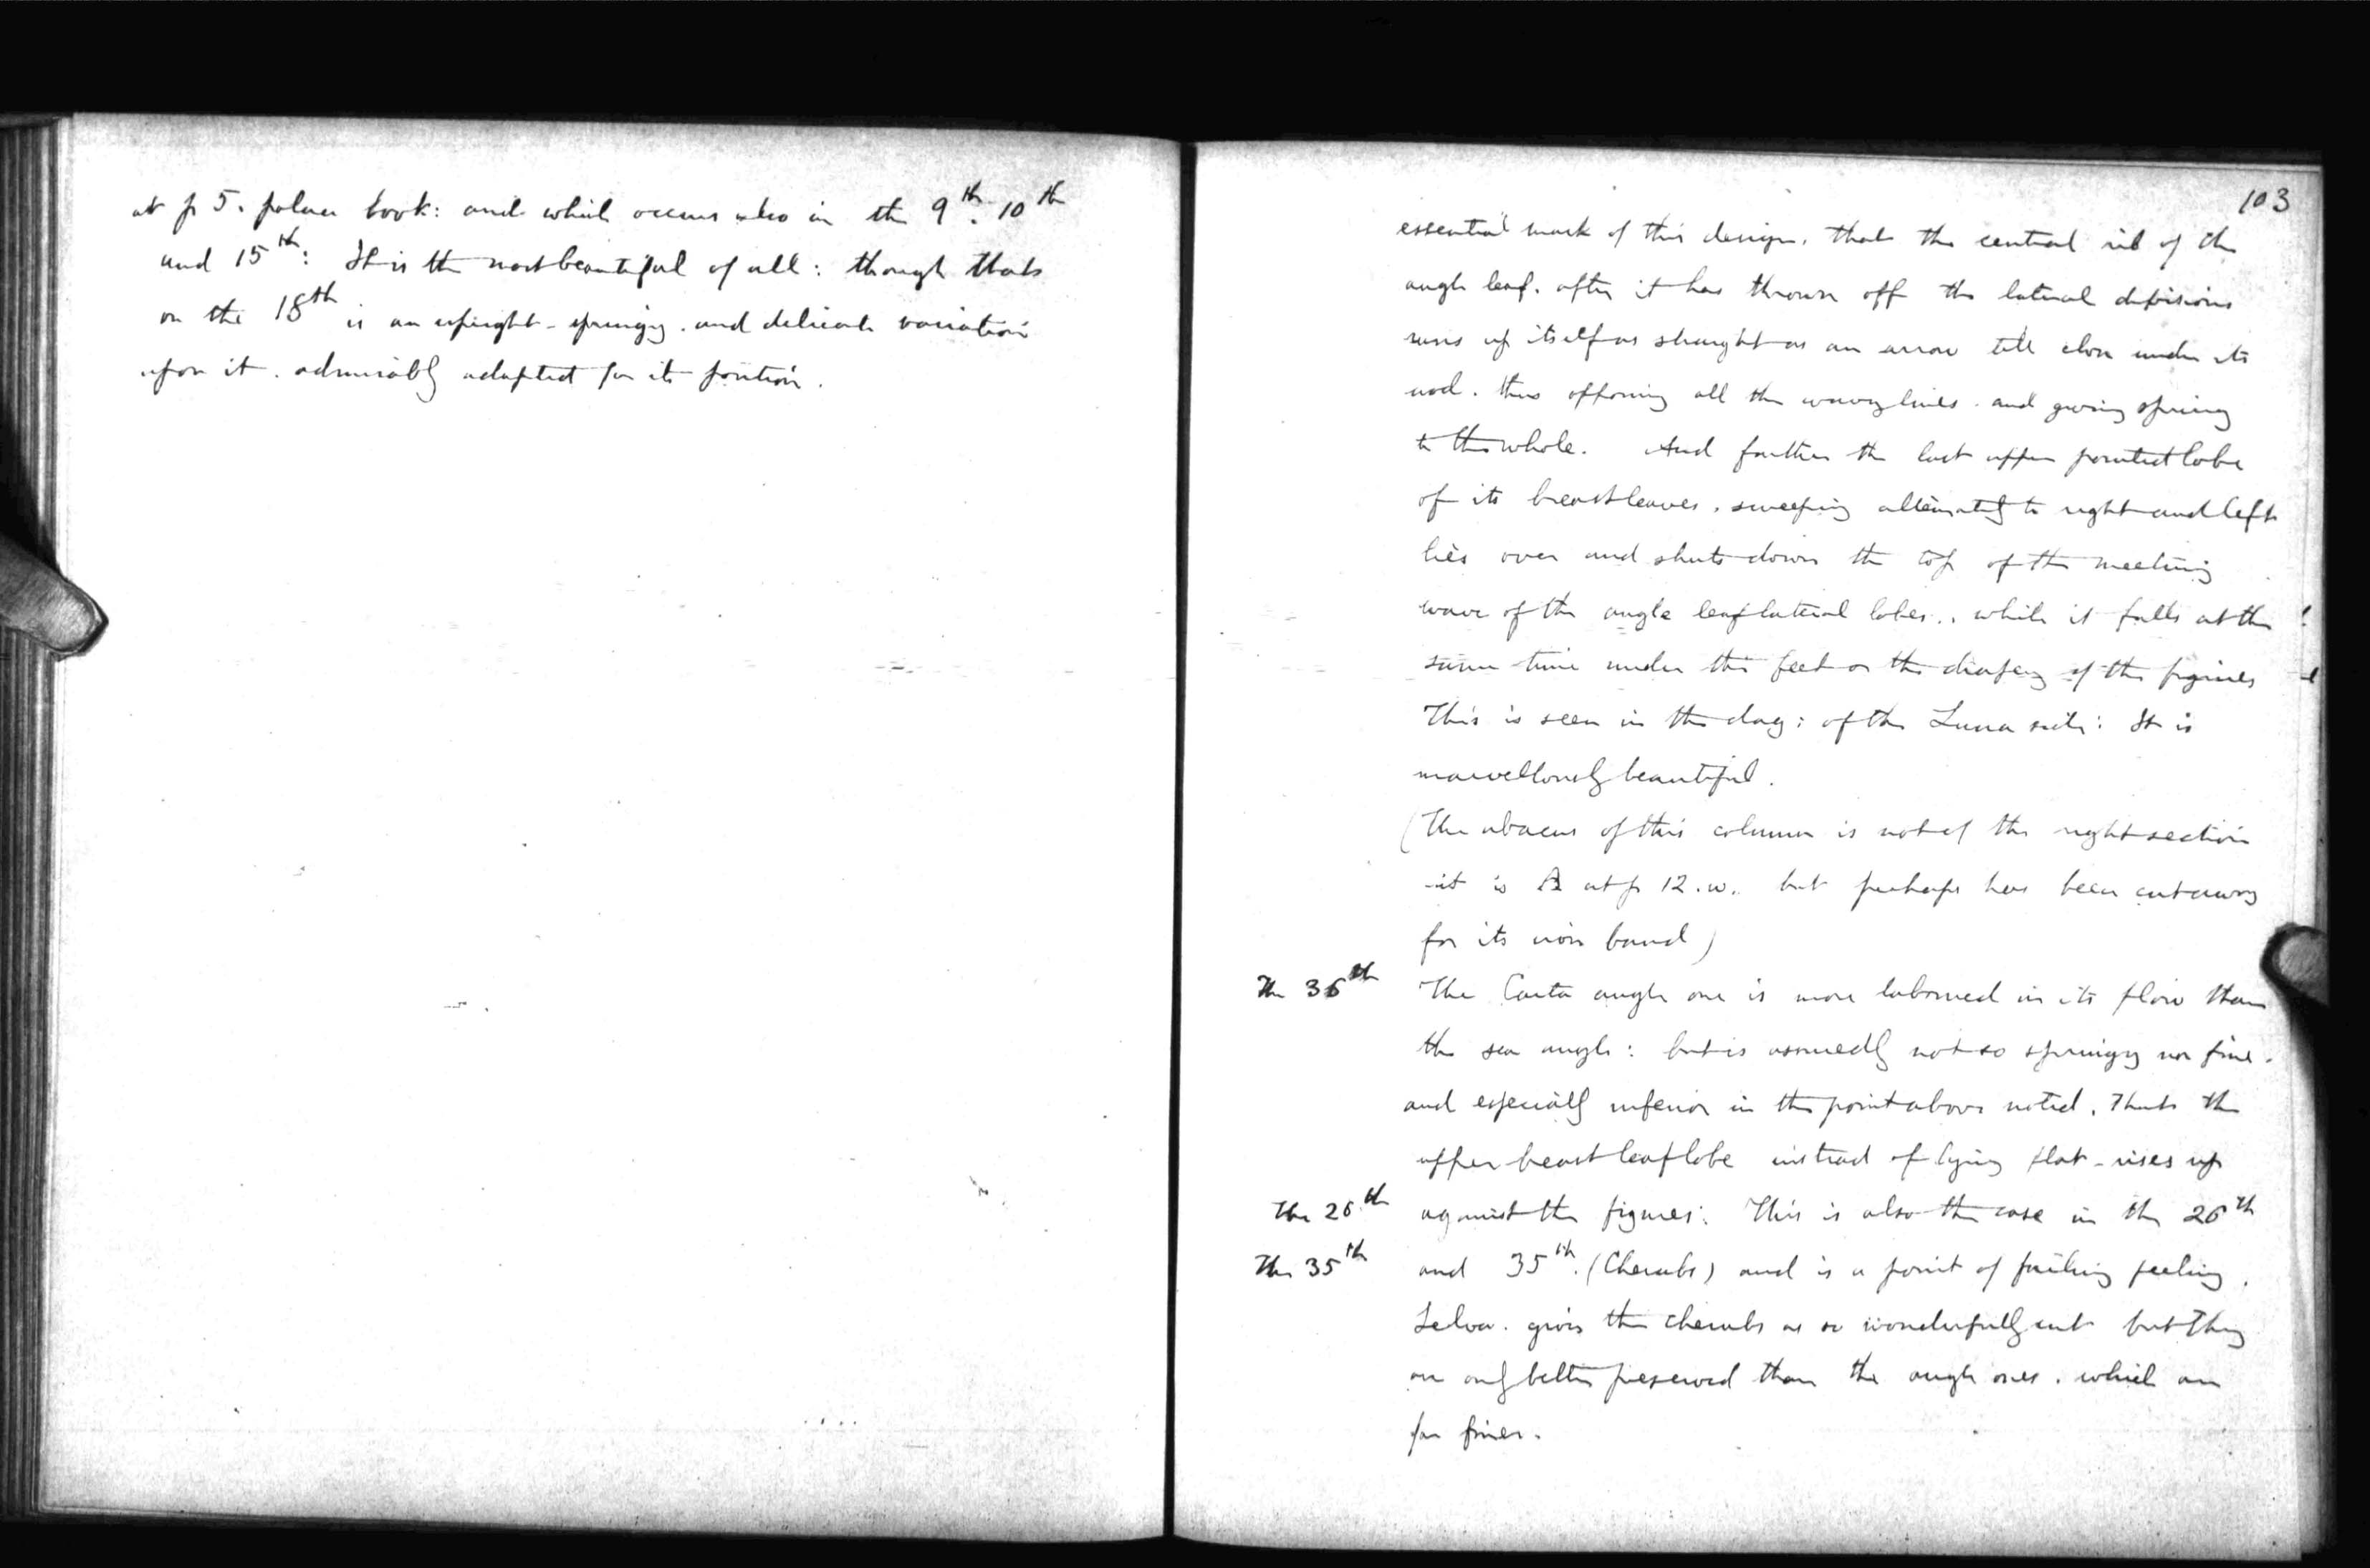 at p 5. palace book: and which occurs also in the 9th. 10th
and 15th: It is the most beautiful of all: though that
on the 18th is an upright - springy. and delicate variation
upon it. admirably adapted for its position.
103
essential mark of this design. that the central rib of the
angle leaf. after it has thrown off the lateral divisions
runs up itself as straight as an arrow till close under its
nod. thus opposing all the wavy lines. and giving spring
to the whole. And farther the last upper pointed lobe
of its breast leaves. sweeping alternately to right and left
lies over and shuts down the top of the meeting
wave of the angle leaf lateral lobes.. while it falls at the
same time under the feet or the drapery of the figures
This is seen in the dag: of the Luna side: It is
marvellously beautiful.
(The abacus of this column is not of the right section
it is at p 12.w.. but perhaps has been cut away
for its iron band)
The 36th The Carta angle one is more laboured in its flow than
the sea angle: but is assuredly not so springy nor fine.
and especially inferior in the point above noted. that the
upper breast leaf lobe instead of lying flat - rises up
The 26th against the figures: This is also the case in the 26th
The 35th and 35th. (Cherubs) and is a point of failing feeling.
Selva. gives the cherubs as so wonderfully cut but they
are only better preserved than the angle ones. which are
far finer.